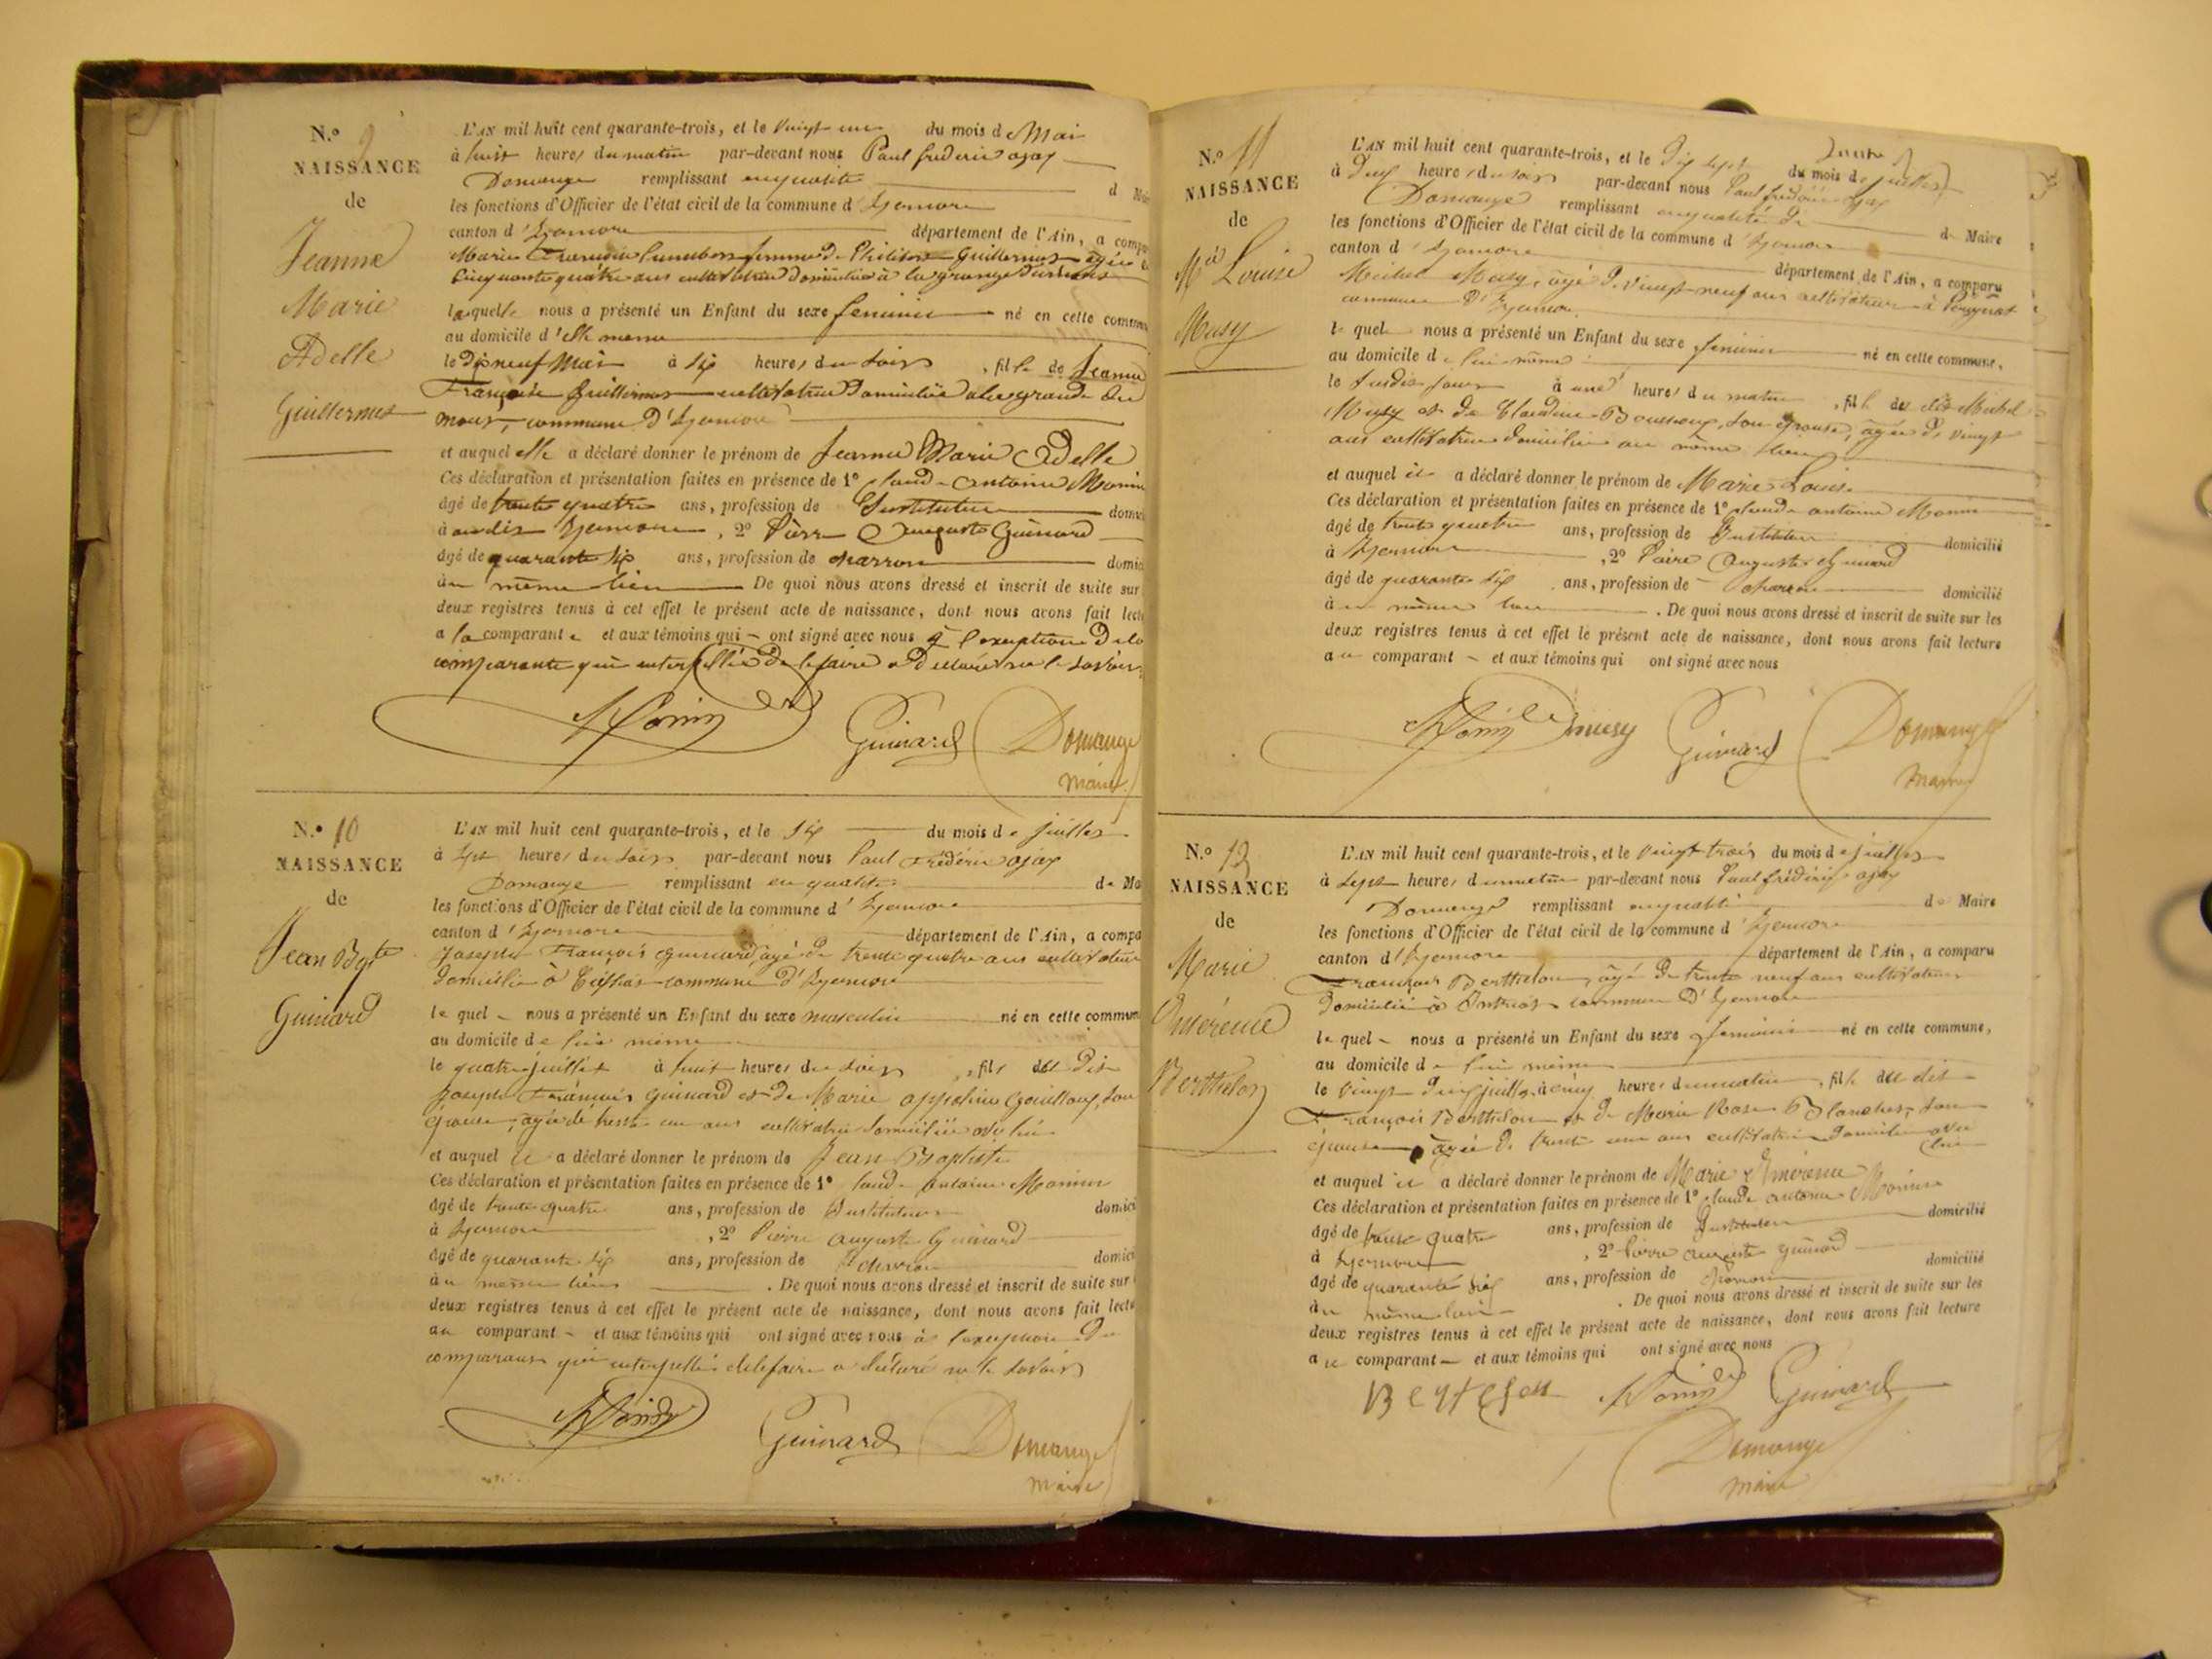 N.° 9
NAISSANCE
de
Jeanne
Marie
Adelle
Guillermet
L'AN mil huit cent quarante-trois, et le vingt un du mois de Mai
à huit heures du matin par-devant nous Paul frederic ajax
Domange remplissant en qualité d
les fonctions d'Officier de l'état civil de la commune d'Izernore
canton d'Izernore département de l'Ain, a compa
Marie femme de Guillermet agée
Cinquante quatre ans domiciliée à la grange
laquelle nous a présenté un Enfant du sexe feminin né en cette commu
au domicile d'elle meme
le dix neuf Mai à six heures du soir, fille de Jeanne
Françoise Guillermet cultivatrice domiciliée
commune d'Izernore
et auquel elle a déclaré donner le prénom de Jeanne Marie Adelle
Ces déclaration et présentation faites en présence de 1° Claude Antoine Monin
âgé de trente quatre ans, profession de Instituteur domi
à Izernore, 2° Pierre Auguste Guinard
âgé de quarante six ans, profession de charron domic
au même lieu De quoi nous avons dressé et inscrit de suite sur
deux registres tenus à cet effet le présent acte de naissance, dont nous avons fait lect
a la comparante et aux témoins qui ont signé avec nous à l'exception de la
comparante qui interpellée de le faire a declaré ne le savoir
Monin Guinard Domange
maire
N.° 10
NAISSANCE
de
Jean Bte
Guinard
L'AN mil huit cent quarante-trois, et le six du mois de juillet
à sept heures du soir par-devant nous Paul Frédéric ajax
Domange remplissant en qualité de Ma
les fonctions d'Officier de l'état civil de la commune d'Izernore
canton d'Izernore département de l'Ain, a compa
Joseph François Guinard, agé de trente quatre ans cultivateur
domicilié à commune d'Izernore
lequel nous a présenté un Enfant du sexe masculin né en cette commun
au domicile de lui même
le quatre juillet à huit heures du soir, fils du dit
Joseph François Guinard et de Marie appoline, son
épouse, agée de trente un ans cultivatrice domiciliée
et auquel il a déclaré donner le prénom de Jean Baptiste
Ces déclaration et présentation faites en présence de 1° Claude Antoine Monin
âgé de trente quatre ans, profession de Instituteur domici
à Izernore, 2° Pierre auguste Guinard
âgé de quarante six ans, profession de charron domici
au meme lieu. De quoi nous avons dressé et inscrit de suite sur
deux registres tenus à cet effet le présent acte de naissance, dont nous avons fait lectu
au comparant et aux témoins qui ont signé avec nous à l'exception du
comparant qui interpellé de le faire a declaré ne le savoir
Monin Guinard Domange
maire
N.° 11
NAISSANCE
de
Mie Louise
Musy
L'AN mil huit cent quarante-trois, et le dix sept du mois de juillet
à deux heures du soir par-devant nous Paul frédéric ajax
Domange remplissant en qualité de de Maire
les fonctions d'Officier de l'état civil de la commune d'Izernore
canton d'Izernore département de l'Ain, a comparu
Michel Musy, agé de vingt-neuf ans cultivateur à Perignat
commune d'Izernore
lequel nous a présenté un Enfant du sexe feminin né en cette commune,
au domicile de lui même
le susdit jour à une heure du matin, fille du dit Michel
Musy et de Claudine, son épouse, agée de vingt
ans cultivatrice domiciliée au même lieu
et auquel il a déclaré donner le prénom de Marie Louise
Ces déclaration et présentation faites en présence de 1° Claude antoine Monin
âgé de trente quatre ans, profession de Instituteur domicilié
à Izernore, 2° Pierre Auguste Guinard
âgé de quarante six ans, profession de charron domicilié
au même lieu. De quoi nous avons dressé et inscrit de suite sur les
deux registres tenus à cet effet le présent acte de naissance, dont nous avons fait lecture
au comparant et aux témoins qui ont signé avec nous
Monin musy Guinard Domange
maire
N.° 12
NAISSANCE
de
Marie
Emérencie
Berthelon
L'AN mil huit cent quarante-trois, et le vingt trois du mois de juillet
à sept heures du matin par-devant nous Paul frédéric ajax
Domange remplissant en qualité de Maire
les fonctions d'Officier de l'état civil de la commune d'Izernore
canton d'Izernore département de l'Ain, a comparu
François Berthelon, agé de trente neuf ans cultivateur
domicilié à commune d'Izernore
lequel nous a présenté un Enfant du sexe feminin né en cette commune,
au domicile de lui même
le vingt deux juillet à cinq heures du matin, fille du dit
François Berthelon et de Marie Rose Blanchet, son
épouse, agée de trente un ans cultivatrice domiciliée
et auquel il a déclaré donner le prénom de Marie Emérencie
Ces déclaration et présentation faites en présence de 1° Claude antoine Monin
âgé de trente quatre ans, profession de Instituteur domicilié
à Izernore, 2° Pierre auguste guinard
âgé de quarante six ans, profession de charron domicilié
au même lieu. De quoi nous avons dressé et inscrit de suite sur les
deux registres tenus à cet effet le présent acte de naissance, dont nous avons fait lecture
au comparant et aux témoins qui ont signé avec nous
Berthelon Monin Guinard
Domange
maire